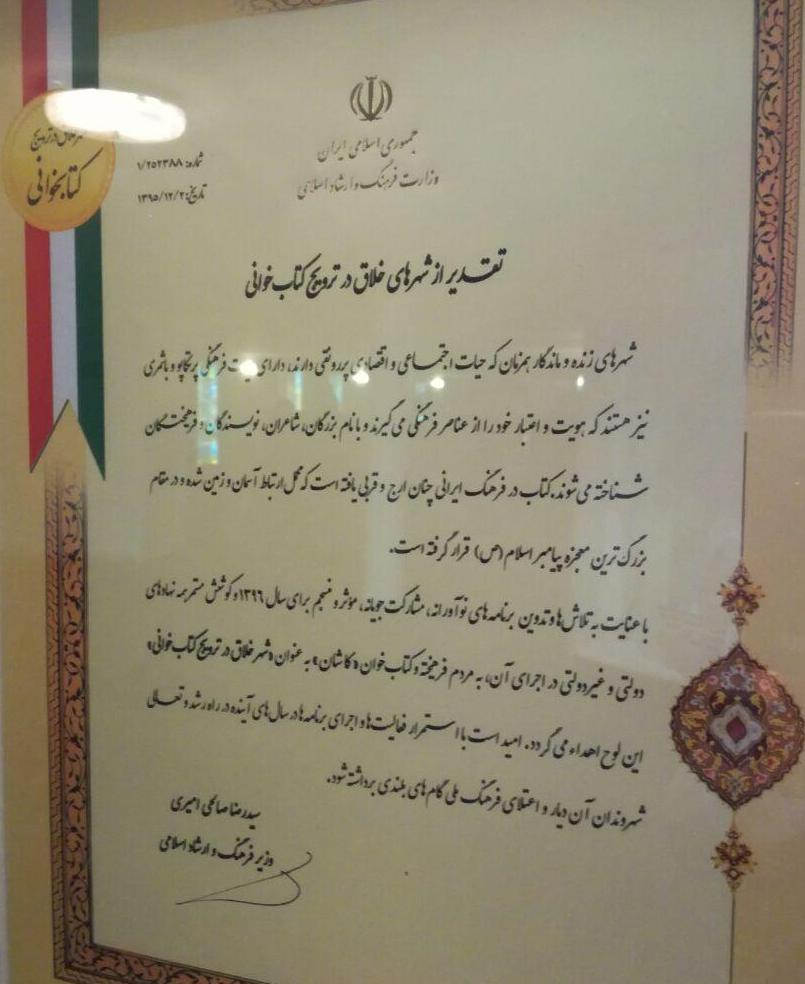 جمهوری اسلامی ایران
وزارت فرهنگ و ارشاد اسلامی
شماره: ۱/۲۵۲۳۸۸
تاریخ: ۱۳۹۵/۱۲/۲
شهر خلاق در ترویج
کتابخوانی
تقدیر از شهرهای خلاق در ترویج کتاب‌خوانی
شهرهای زنده و ماندگار همزمان که حیات اجتماعی و اقتصادی پررونقی دارند، دارای فرهنگی پرتکاپو و باثمری
نیز هستند که هویت و اعتبار خود را از عناصر فرهنگی می‌گیرند و با نام بزرگان، شاعران، نویسندگان و فرهیختگان
شناخته می‌شوند. کتاب در فرهنگ ایرانی چنان ارج و قربی یافته است که محل ارتباط آسمان و زمین شده و در مقام
بزرگ‌ترین معجزه پیامبر اسلام (ص) قرار گرفته است.
با عنایت به تلاش‌ها و تدوین برنامه‌های نوآورانه، مشارکت‌جویانه، مؤثر و منسجم برای سال ۱۳۹۶ و کوشش مستمر همه نهادهای
دولتی و غیردولتی در اجرای آن، به مردم فرهیخته و کتاب‌خوان «کاشان» به عنوان «شهر خلاق در ترویج کتاب‌خوانی»
این لوح اهداء می‌گردد. امید است با استمرار فعالیت‌ها و اجرای برنامه‌ها در سال‌های آینده در راه رشد و تعالی
شهروندان آن دیار و اعتلای فرهنگ ملی گام‌های بلندی برداشته شود.
سیدرضا صالحی امیری
وزیر فرهنگ و ارشاد اسلامی